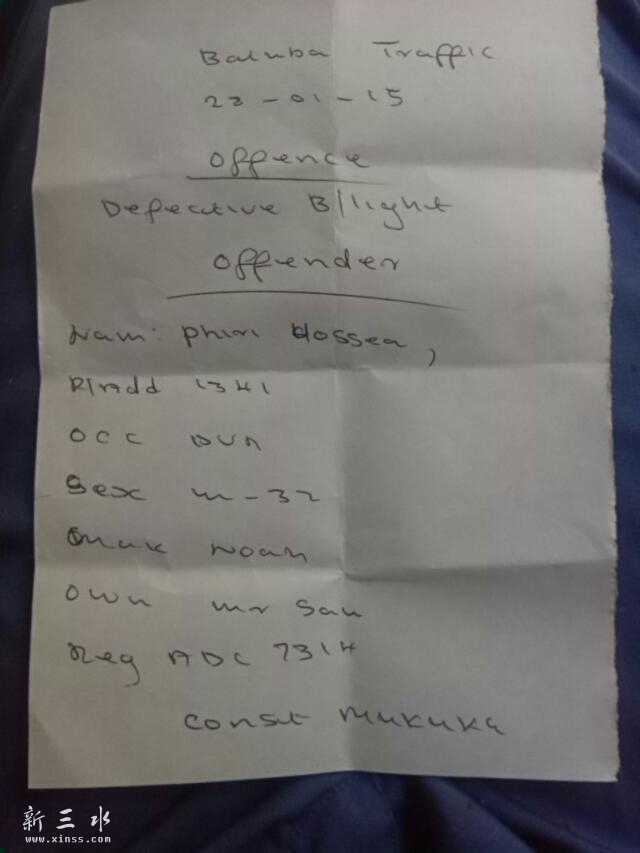 Baluba Traffic
22-01-15
Offence
Defective B/light
Offender
Nam: Phiri Hossea,
R/Add 1341
OCC DVR
Sex m-32
Mak Noah
Own mr Sau
Reg ADC 7314
Const Mukuka
新三水
www.xinss.com